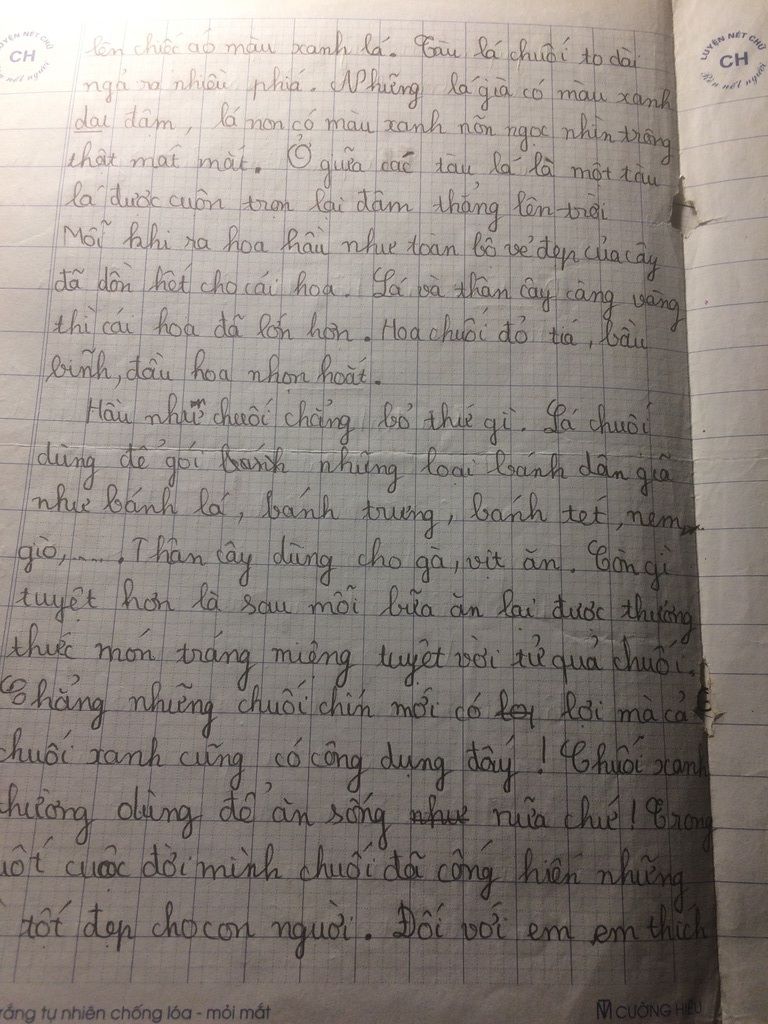 LUYỆN NẾT CHỮ
CH
Rèn nết người
lên chiếc aó màu xanh lá. Tàu lá chuối to dài
ngả ra nhiều phiá. Những lá già có màu xanh
đậm, lá non có màu xanh nõn ngọc nhìn trông
thật mát mắt. Ở giữa các tàu lá là một tàu
lá được cuộn tròn lại đâm thẳng lên trời
Mỗi khi ra hoa hầu như toàn bộ vẻ đẹp của cây
đã dồn hết cho cái hoa. Lá và thân cây càng vàng
thì cái hoa đã lớn hơn. Hoa chuối đỏ tiá, bầu
bĩnh, đầu hoa nhọn hoắt.
Hầu như chuối chẳng bỏ thứ gì. Lá chuối
dùng để gói bánh những loại bánh dân giã
như bánh lá, bánh trưng, bánh tét, nem,
giò,..... Thân cây dùng cho gà, vịt ăn. Còn gì
tuyệt hơn là sau mỗi bữa ăn lại được thưởng
thức món tráng miệng tuyệt vời từ quả chuối.
Chẳng những chuối chín mới có lợi mà cả
chuối xanh cũng có công dụng đấy! Chuối xanh
thường dùng để ăn sống như nữa chứ! Trong
cuộc đời mình chuối đã cống hiến những
tốt đẹp cho con người. Đối với em em thích
trắng tự nhiên chống lóa - mỏi mắt
CUONG HIEU
LUYỆN NẾT CHỮ
CH
Rèn nết người